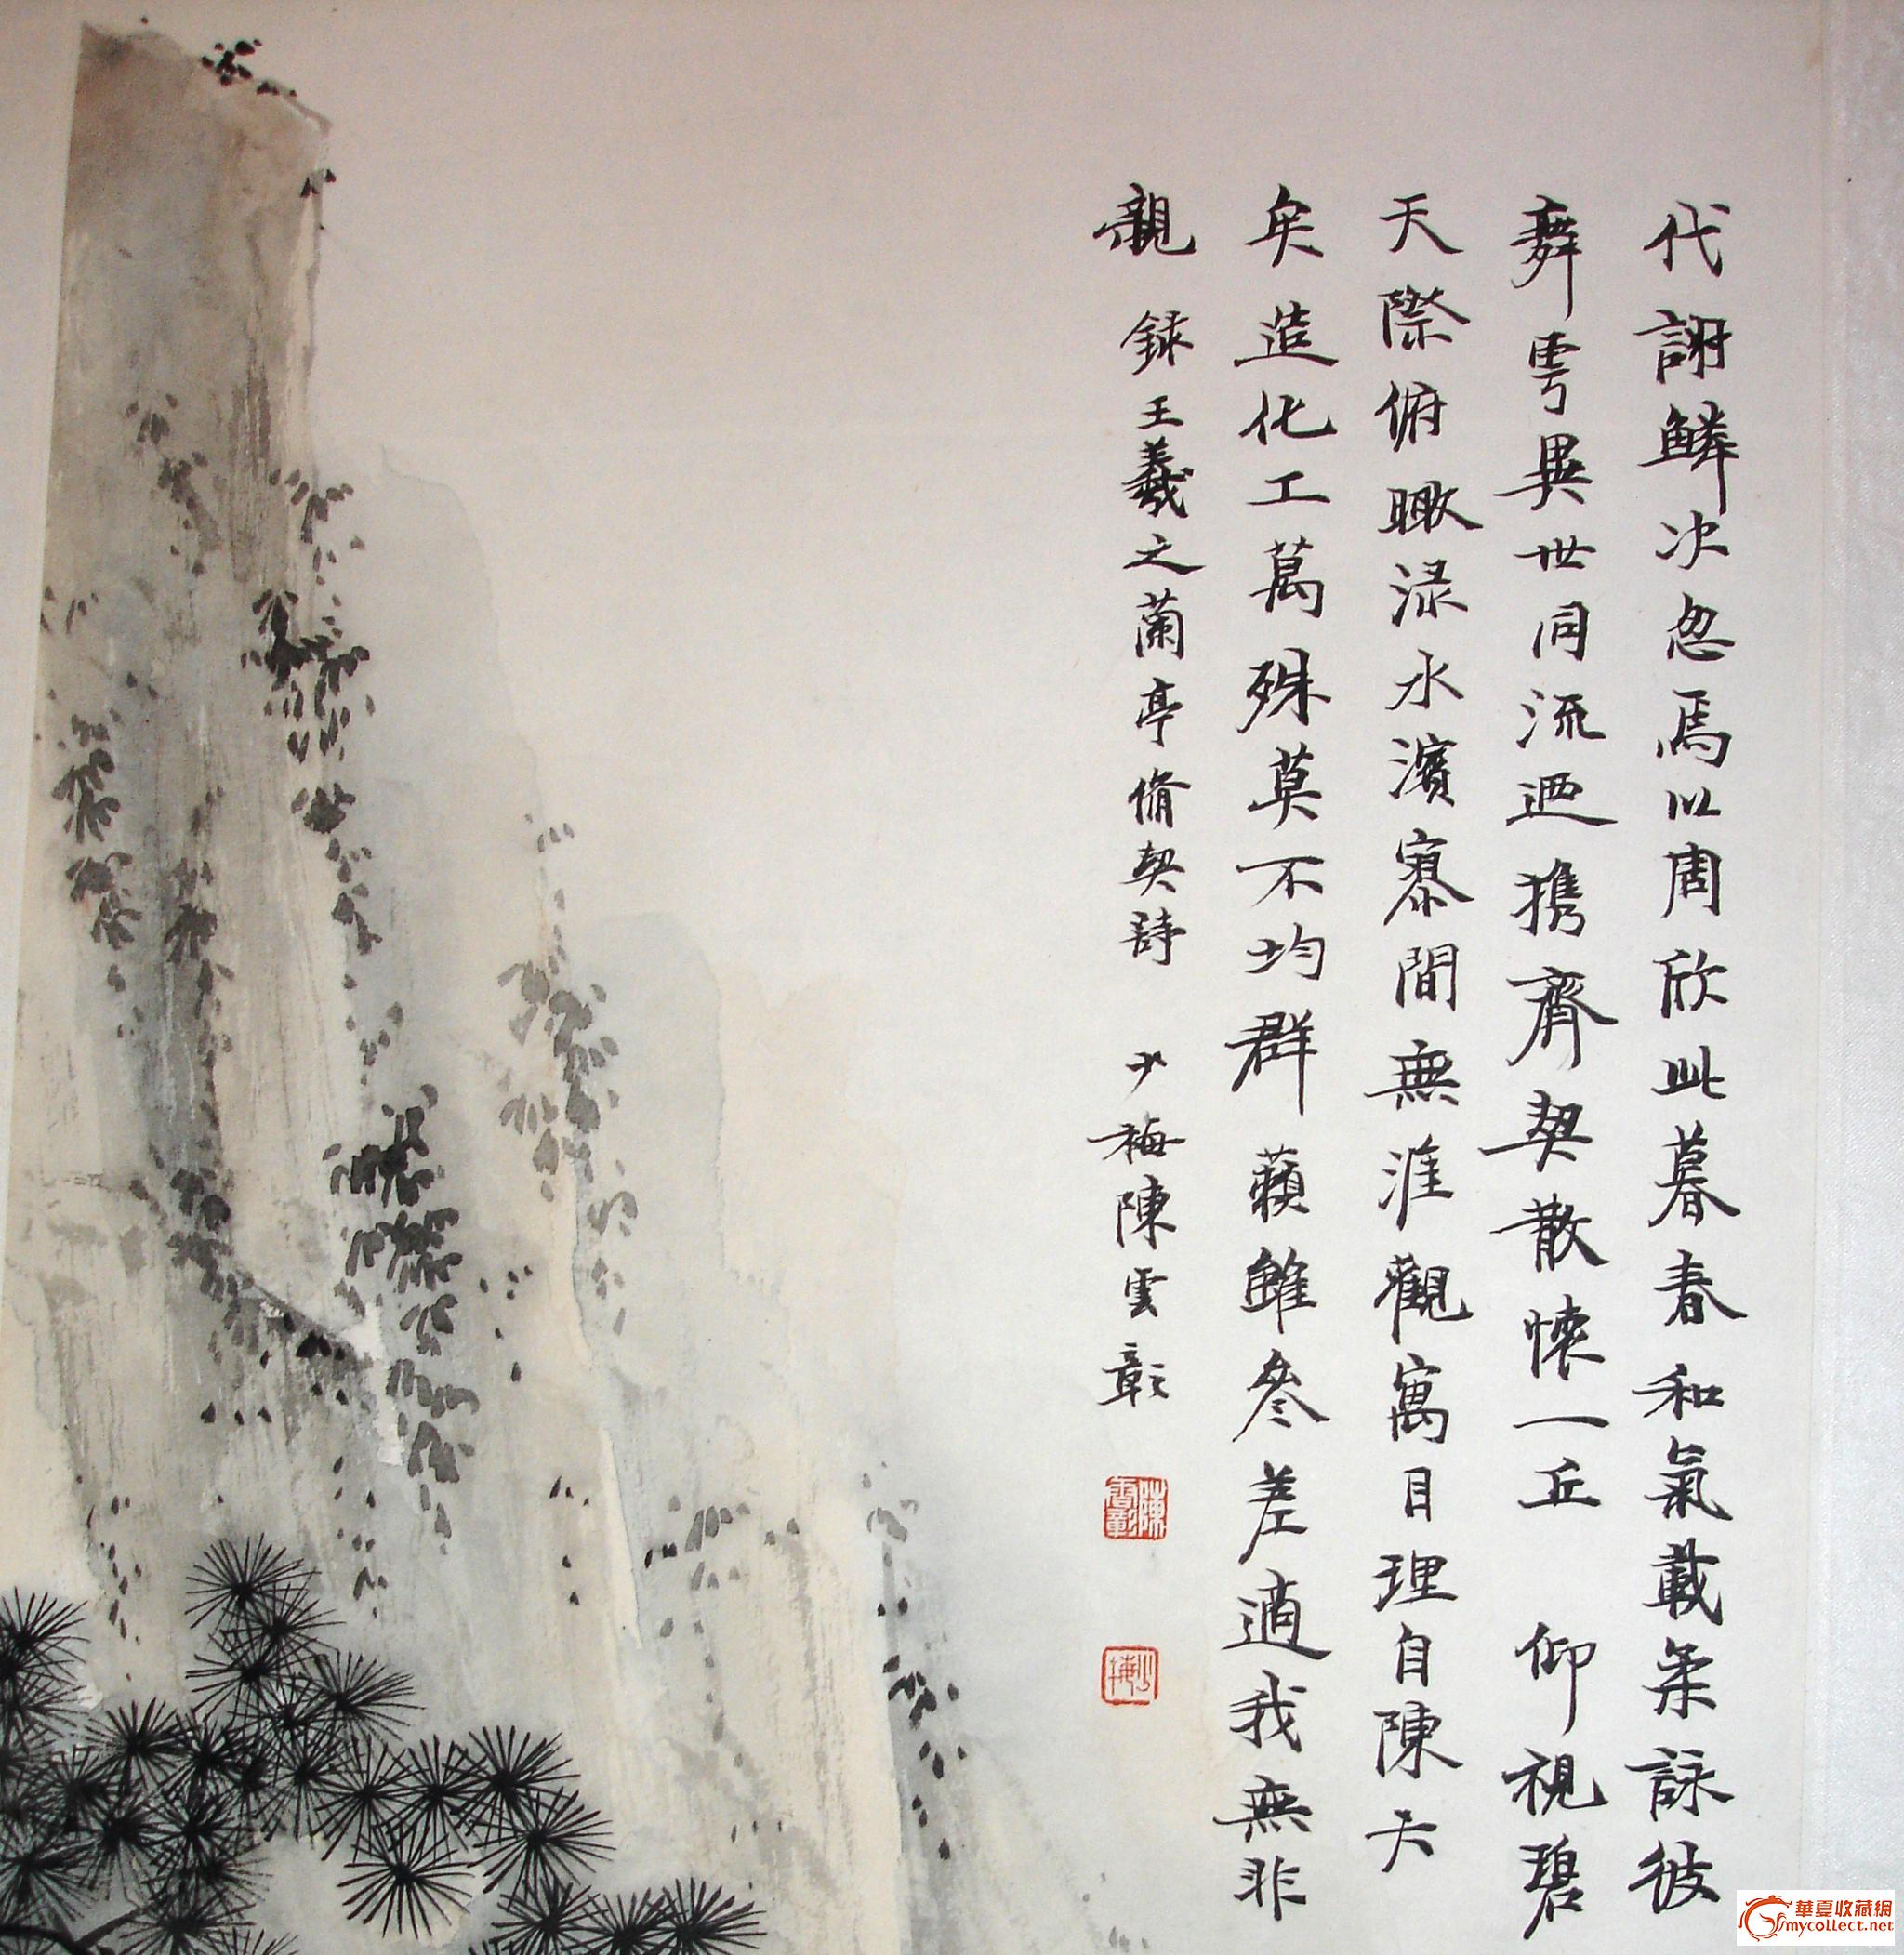 代謝鱗次忽焉以周欣此暮春和氣載柔詠彼
舞雩異世同流迺攜齊契散懷一丘 仰視碧
天際俯瞰淥水濱寥閴無涯觀寓目理自陳大
矣造化工萬殊莫不均群籟雖參差適我無非
親 録王羲之蘭亭脩契詩 少梅陳雲彰
陳雲彰
少梅
華夏收藏網
mycollect.net